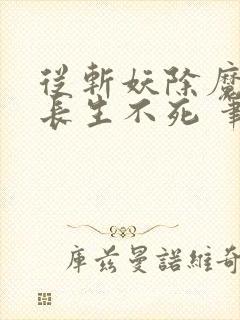 從斬妖除魔
長生不死 筆
庫茲曼諾維奇